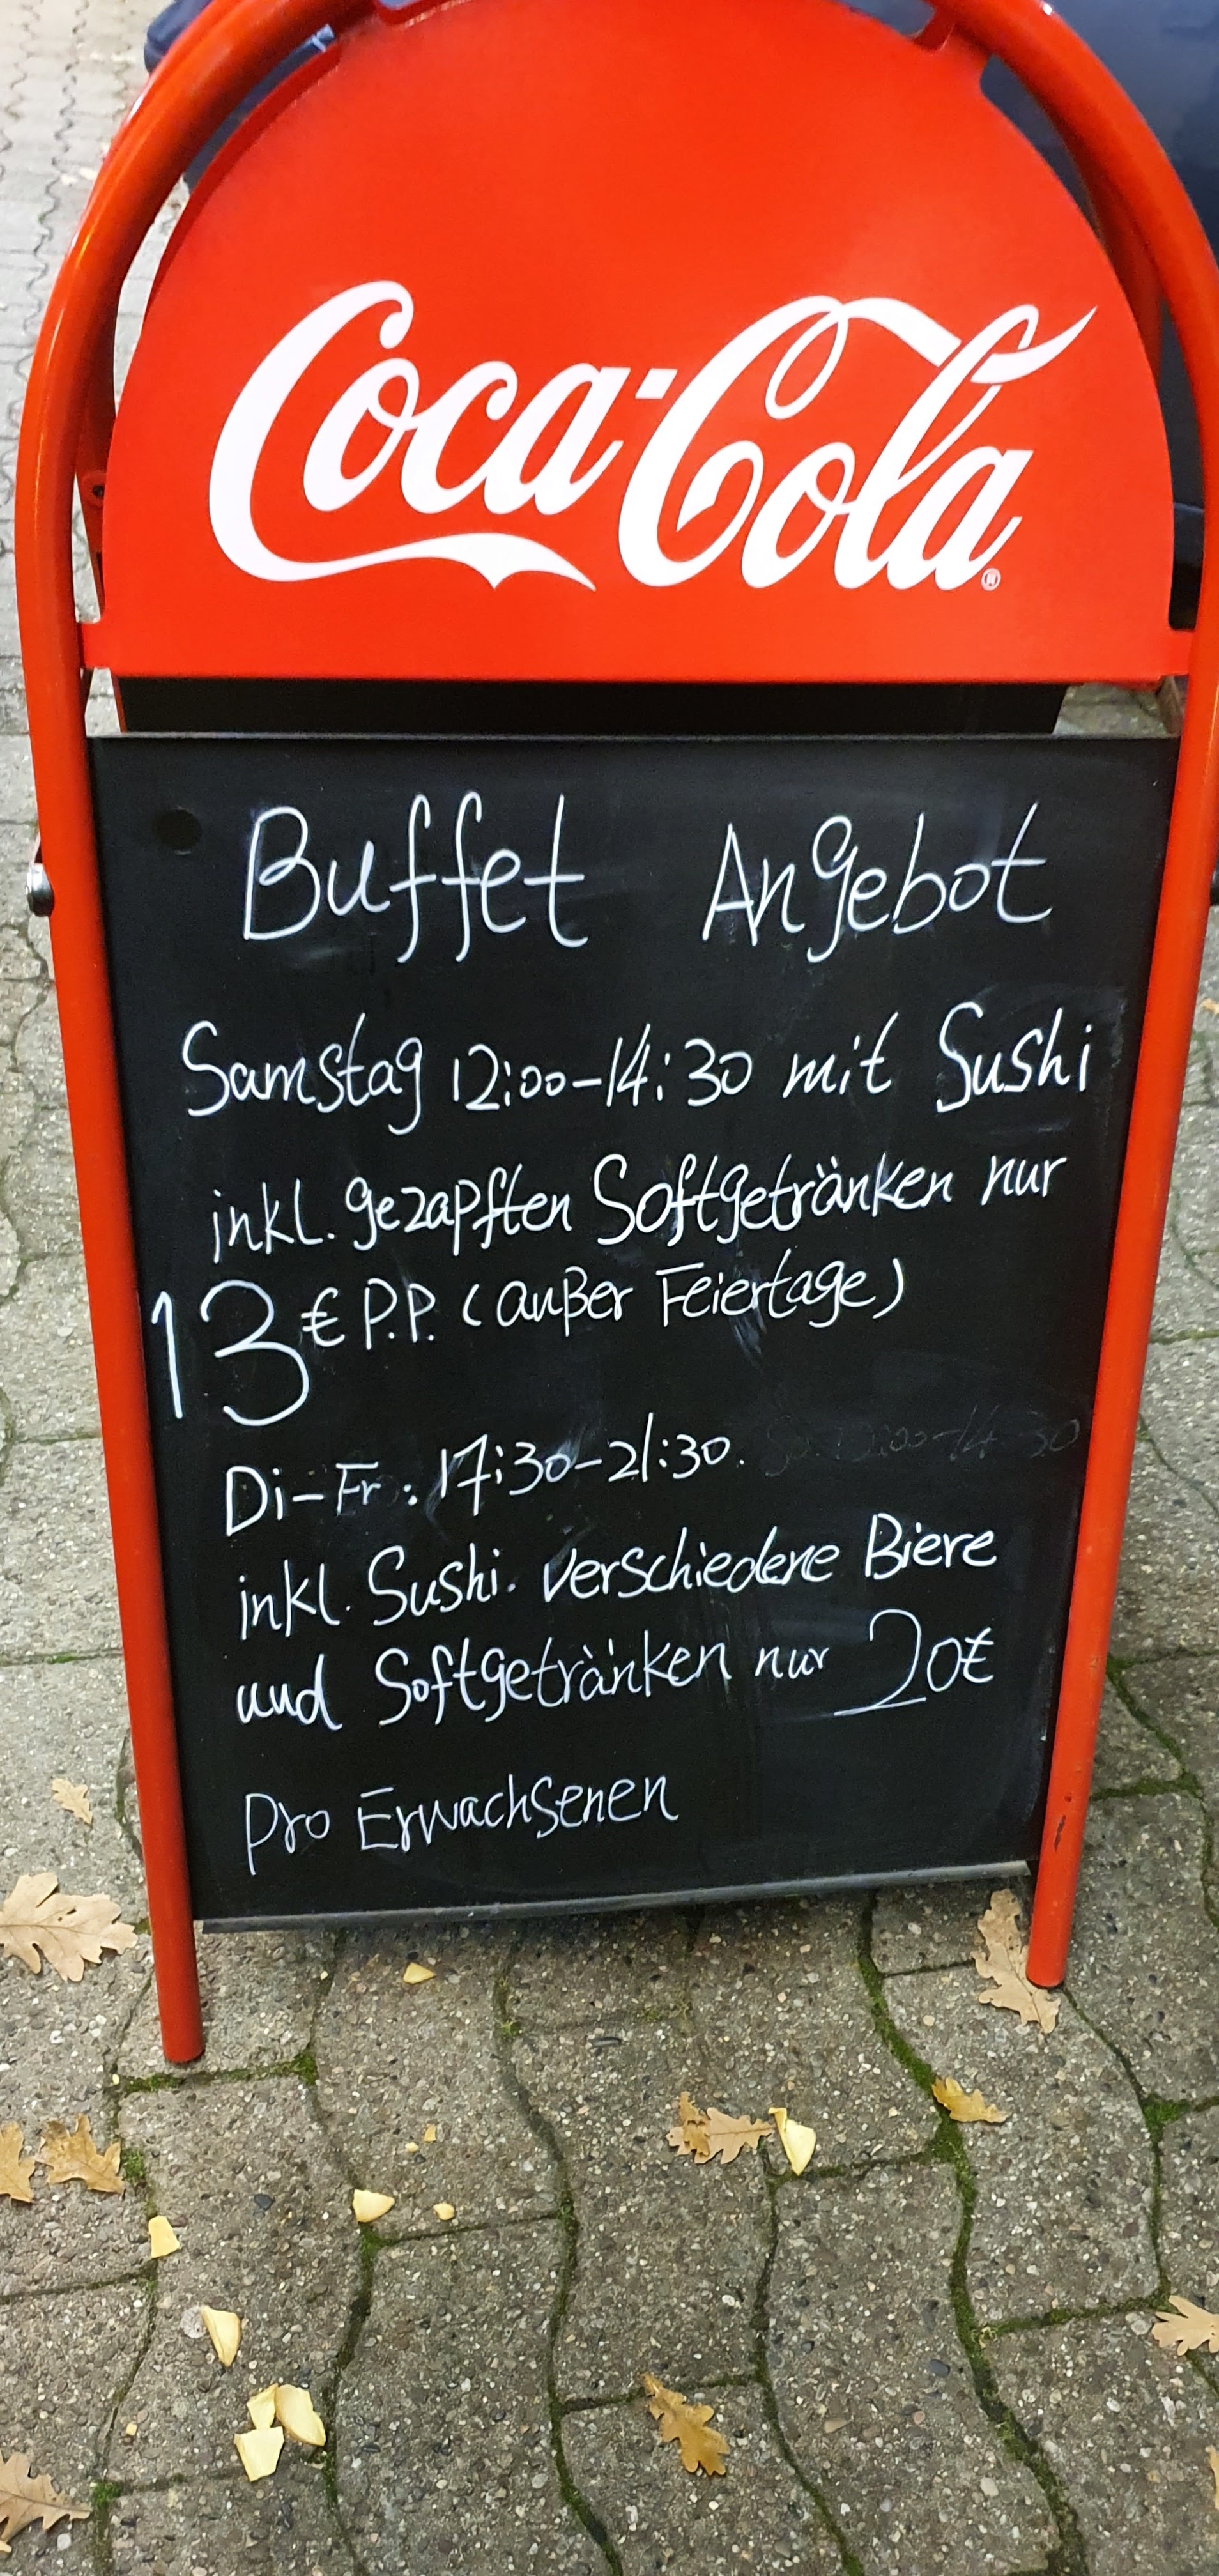 Coca-Cola
Buffet Angebot
Samstag 12:00-14:30 mit Sushi
inkl. gezapften Softgetränken nur
13€ P.P. (außer Feiertage)
Di-Fr: 17:30-21:30.
inkl. Sushi. verschiedene Biere
und Softgetränken nur 20€
pro Erwachsenen